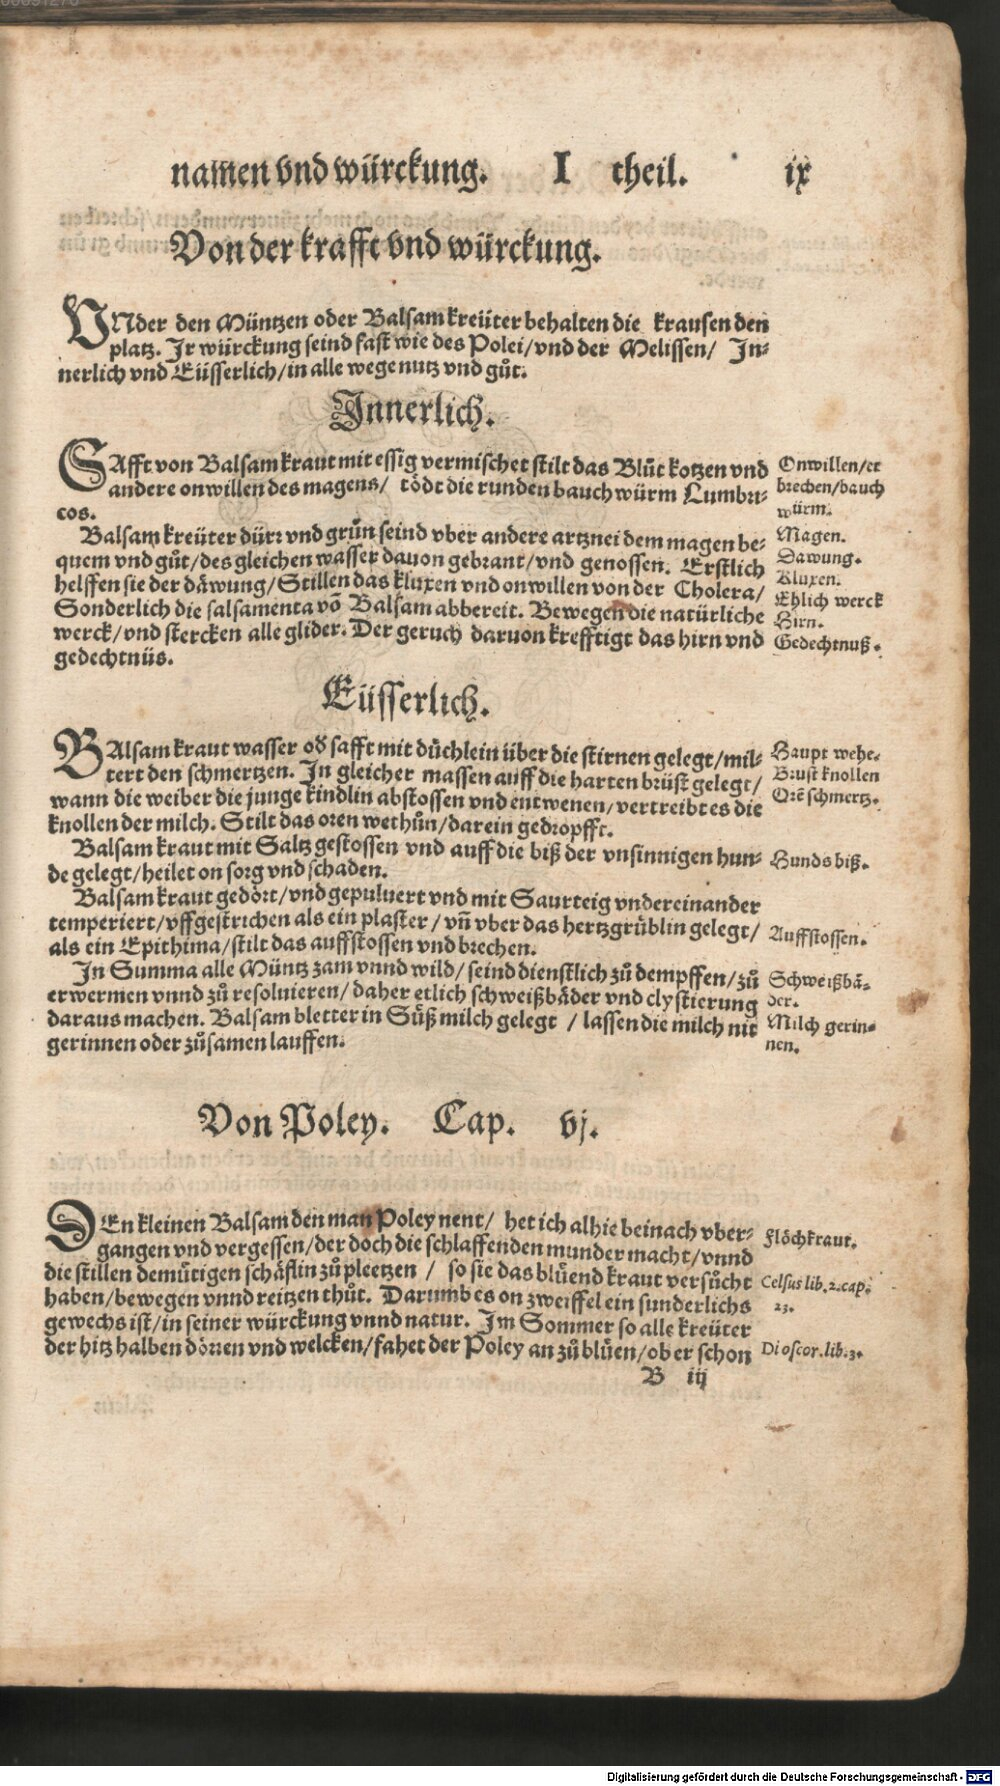 namen vnd würckung. I theil. ix
Von der krafft vnd würckung.
VNder den Müntzen oder Balsamkreüter behalten die krausen den
platz. Jr würckung seind fast wie des Polei/vnd der Melissen/ Jn-
nerlich vnd Eüsserlich/in alle wege nutz vnd gůt.
Jnnerlich.
SAfft von Balsamkraut mit essig vermischet stilt das Blůt kotzen vnd
andere onwillen des magens/ tödt die runden bauchwürm Lumbri-
cos.
Onwillen/er
brechen/bauch
würm.
Balsamkreüter dürr vnd grůn seind vber andere artznei dem magen be-
quem vnd gůt/des gleichen wasser dauon gebrant/vnd genossen. Erstlich
helffen sie der däwung/Stillen das kluxen vnd onwillen von der Cholera/
Sonderlich die salsamenta võ Balsam abbereit. Bewegen die natürliche
werck/vnd stercken alle glider. Der geruch daruon krefftigt das hirn vnd
gedechtnüs.
Magen.
Däwung.
Kluxen.
Ehlich werck
Hirn.
Gedechtnuß.
Eüsserlich.
BAlsamkraut wasser oď safft mit düchlein über die stirnen gelegt/mil-
tert den schmertzen. Jn gleicher massen auff die harten brüst gelegt/
wann die weiber die junge kindlin abstossen vnd entwenen/vertreibt es die
knollen der milch. Stilt das oren wethůn/darein gedropfft.
Haupt wehe.
Brust knollen
Orẽ schmertz.
Balsamkraut mit Saltz gestossen vnd auff die biß der vnsinnigen hun-
de gelegt/heilet on sorg vnd schaden.
Hunds biß.
Balsamkraut gedört/vnd gepuluert vnd mit Saurteig vndereinander
temperiert/vffgestrichen als ein plaster/vñ vber das hertzgrüblin gelegt/
als ein Epithima/stilt das auffstossen vnd brechen.
Auffstossen.
Jn Summa alle Müntz zam vnnd wild/seind dienstlich zů dempffen/zů
erwermen vnnd zů resoluieren/daher etlich schweißbäder vnd clystierung
daraus machen. Balsambletter in Süß milch gelegt /lassen die milch nit
gerinnen oder zůsamen lauffen.
Schweißbä-
der.
Milch gerin-
nen.
Von Poley. Cap. vj.
DEn kleinen Balsam den man Poley nent/ het ich alhie beinach vber-
gangen vnd vergessen/der doch die schlaffenden munder macht/vnnd
die stillen demütigen schäflin zů pleetzen / so sie das blüend kraut versůcht
haben/bewegen vnnd reitzen thůt. Darumb es on zweiffel ein sunderlichs
gewechs ist/in seiner würckung vnnd natur. Jm Sommer so alle kreüter
der hitz halben dörren vnd welcken/fahet der Poley an zů blüen/ob er schon
Flöchkraut.
Celsus lib.2.cap.
23.
Dioscor.lib.3.
B iij
Digitalisierung gefördert durch die Deutsche Forschungsgemeinschaft - DFG